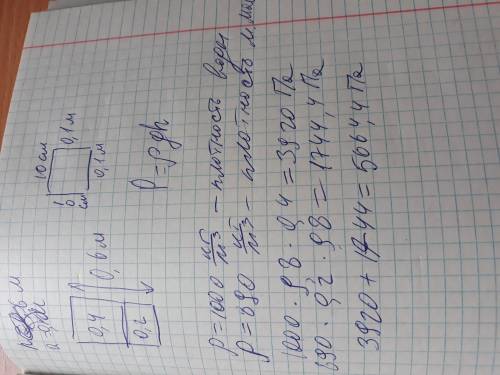 0,4
0,2
0,6 м
10 см
10 см
0,1 м
0,1 м
P = ρgh
ρ = 1000 кг/м³ — плотность воды
ρ = 890 кг/м³ — плотность м.
1000 · 9,8 · 0,4 = 3920 Па
890 · 0,2 · 9,8 = 1744,4 Па
3920 + 1744 = 5664,4 Па